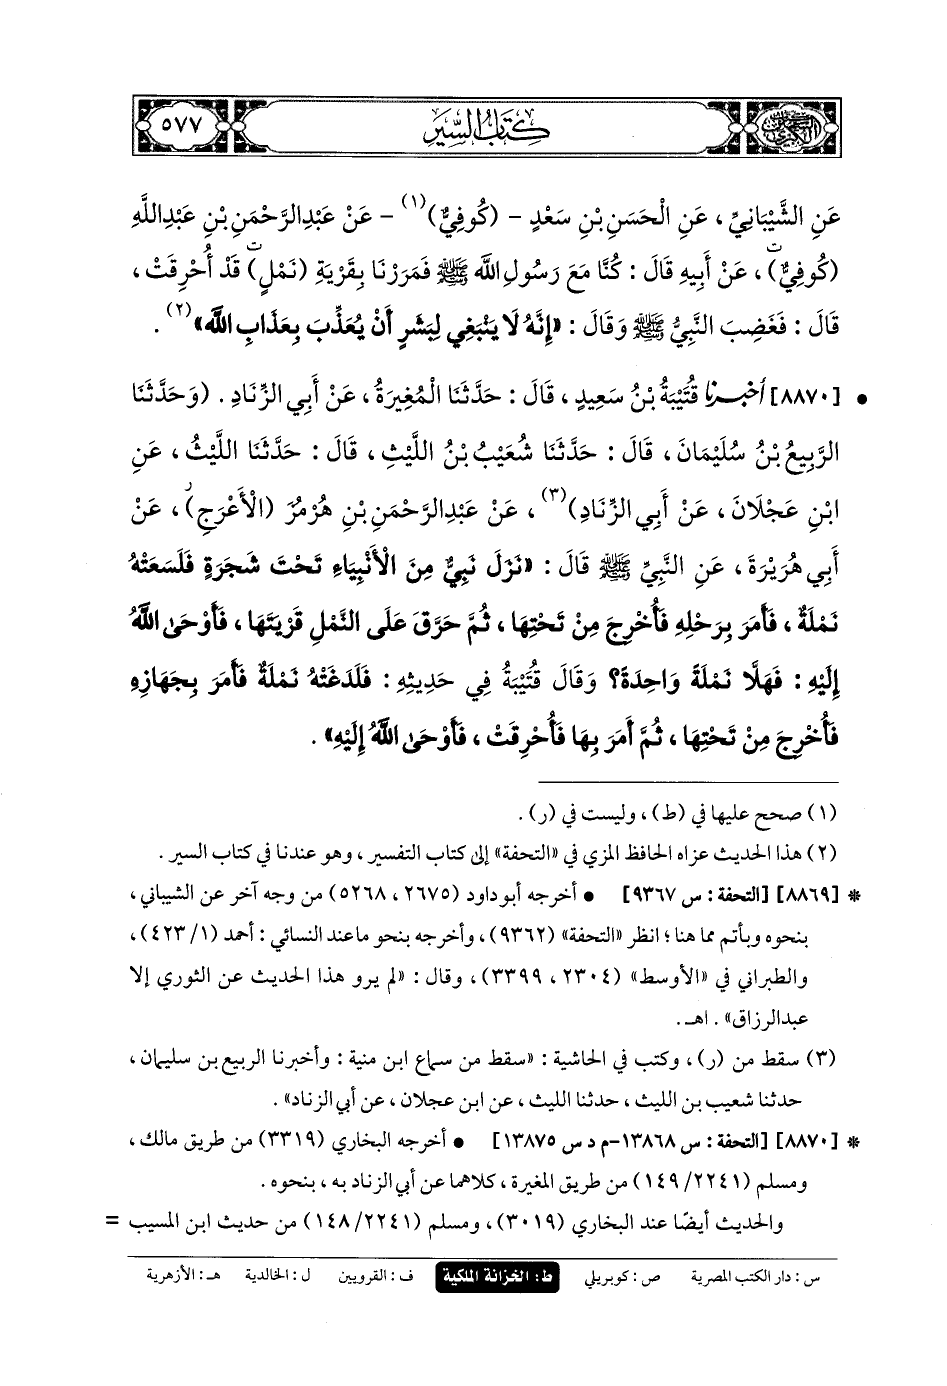 كتاب السير
٥٧٧
عَنِ الشَّيْبَانِيِّ ، عَنِ الْحَسَنِ بْنِ سَعْدٍ - (كُوفِيٌّ)(١) - عَنْ عَبْدِالرَّحْمَنِ بْنِ عَبْدِاللَّهِ
(كُوفِيٌّ)ت ، عَنْ أَبِيهِ قَالَ : كُنَّا مَعَ رَسُولِ اللَّه ﷺ فَمَرَرْنَا بِقَرْيَةِ (نَمْلٍ)ت قَدْ أُحْرِقَتْ ،
قَالَ : فَغَضِبَ النَّبِيُّ ﷺ وَقَالَ : «إِنَّهُ لَا يَنْبَغِي لِبَشَرٍ أَنْ يُعَذِّبَ بِعَذَابِ اللَّه»(٢) .
• [٨٨٧٠] أَخْبَرَنَا قُتَيْبَةُ بْنُ سَعِيدٍ ، قَالَ : حَدَّثَنَا الْمُغِيرَةُ ، عَنْ أَبِي الزِّنَادِ . (وَحَدَّثَنَا
الرَّبِيعُ بْنُ سُلَيْمَانَ ، قَالَ : حَدَّثَنَا شُعَيْبُ بْنُ اللَّيْثِ ، قَالَ : حَدَّثَنَا اللَّيْثُ ، عَنِ
ابْنِ عَجْلَانَ ، عَنْ أَبِي الزِّنَادِ)(٣) ، عَنْ عَبْدِالرَّحْمَنِ بْنِ هُرْمُزَ (الْأَعْرَجِ)ر ، عَنْ
أَبِي هُرَيْرَةَ ، عَنِ النَّبِيِّ ﷺ قَالَ : «نَزَلَ نَبِيٌّ مِنَ الْأَنْبِيَاءِ تَحْتَ شَجَرَةٍ فَلَسَعَتْهُ
نَمْلَةٌ ، فَأَمَرَ بِرَحْلِهِ فَأُخْرِجَ مِنْ تَحْتِهَا ، ثُمَّ حَرَّقَ عَلَى النَّمْلِ قَرْيَتَهَا ، فَأَوْحَى اللَّهُ
إِلَيْهِ : فَهَلَّا نَمْلَةً وَاحِدَةً؟ وَقَالَ قُتَيْبَةُ فِي حَدِيثِهِ : فَلَدَغَتْهُ نَمْلَةٌ فَأَمَرَ بِجَهَازِهِ
فَأُخْرِجَ مِنْ تَحْتِهَا ، ثُمَّ أَمَرَ بِهَا فَأُحْرِقَتْ ، فَأَوْحَى اللَّهُ إِلَيْهِ» .
(١) صحح عليها في (ط) ، وليست في (ر) .
(٢) هذا الحديث عزاه الحافظ المزي في «التحفة» إلى كتاب التفسير ، وهو عندنا في كتاب السير .
* [٨٨٦٩] [التحفة : س ٩٣٦٧] • أخرجه أبو داود (٢٦٧٥ ، ٥٢٦٨) من وجه آخر عن الشيباني ،
بنحوه وبأتم مما هنا ؛ انظر «التحفة» (٩٣٦٢) ، وأخرجه بنحو ما عند النسائي : أحمد (١/ ٤٢٣) ،
والطبراني في «الأوسط» (٢٣٠٤ ، ٣٣٩٩) ، وقال : «لم يرو هذا الحديث عن الثوري إلا
عبدالرزاق» . اهـ .
(٣) سقط من (ر) ، وكتب في الحاشية : «سقط من سماع ابن منية : وأخبرنا الربيع بن سليمان ،
حدثنا شعيب بن الليث ، حدثنا الليث ، عن ابن عجلان ، عن أبي الزناد» .
* [٨٨٧٠] [التحفة : س ١٣٨٦٨-م د س ١٣٨٧٥] • أخرجه البخاري (٣٣١٩) من طريق مالك ،
ومسلم (٢٢٤١/ ١٤٩) من طريق المغيرة ، كلاهما عن أبي الزناد به ، بنحوه .
والحديث أيضًا عند البخاري (٣٠١٩) ، ومسلم (٢٢٤١/ ١٤٨) من حديث ابن المسيب =
س : دار الكتب المصرية ص : كوبريلي ط : الخزانة الملكية ف : القرويين ل : الخالدية هـ : الأزهرية